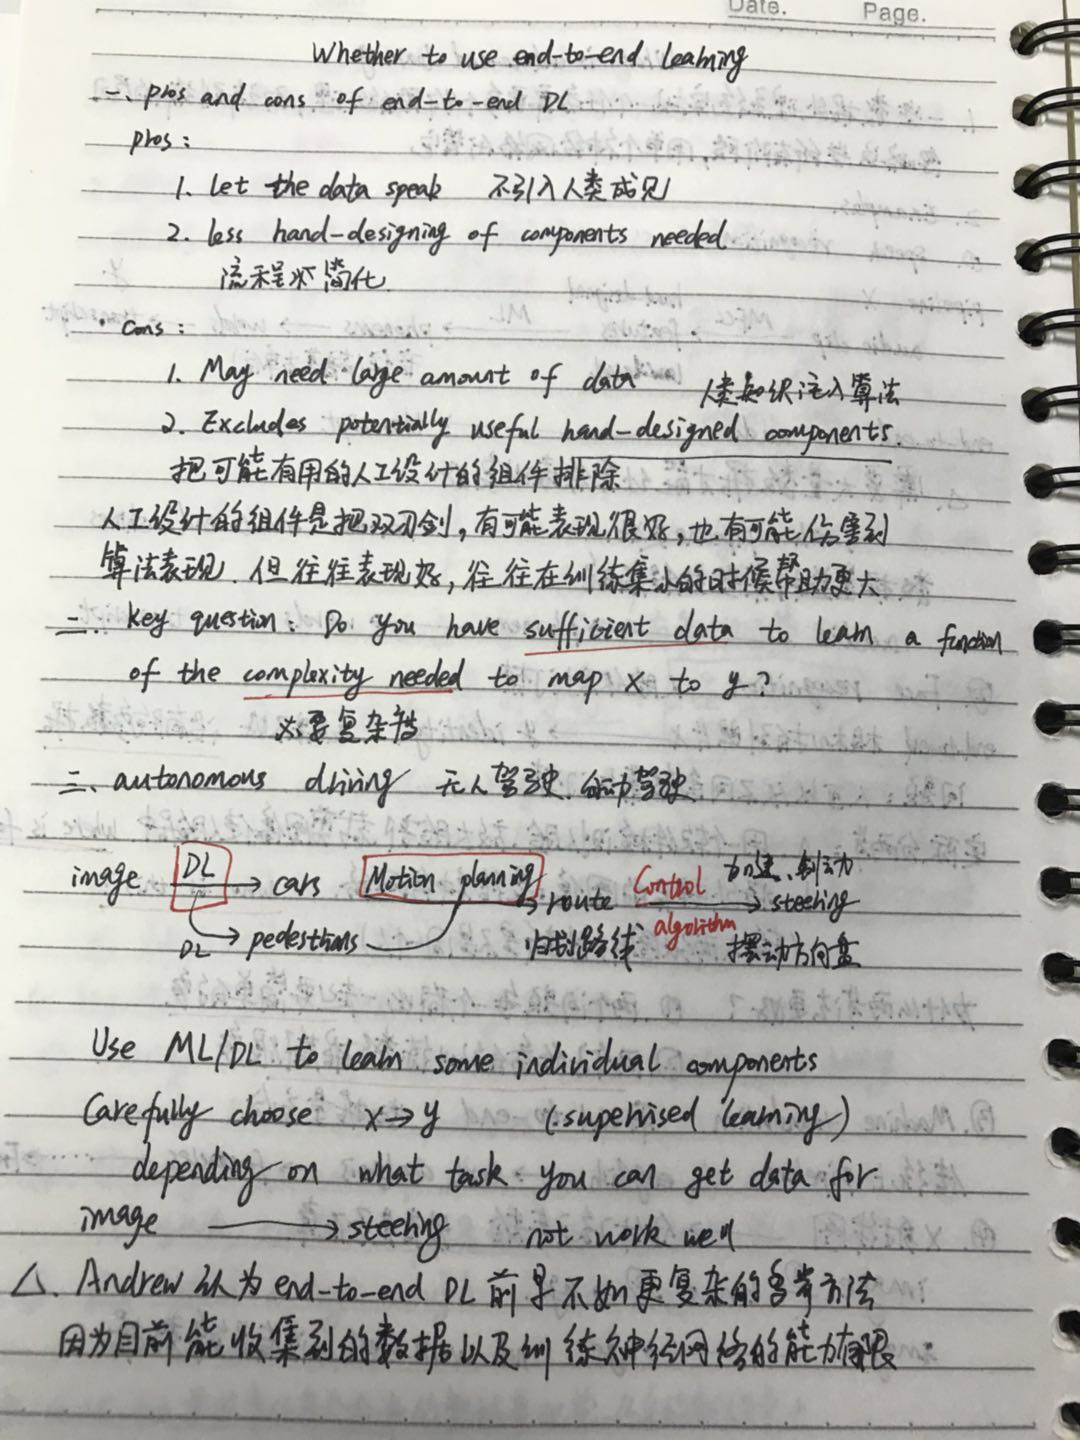 Date. Page.
Whether to use end-to-end learning
一、pros and cons of end-to-end DL
pros:
1. Let the data speak 不引入人类成见
2. less hand-designing of components needed
流程 简化
cons:
1. May need large amount of data 人类知识注入算法
2. Excludes potentially useful hand-designed components.
把可能有用的人工设计的组件排除
人工设计的组件是把双刃剑,有可能表现很好,也有可能伤害到
算法表现.但往往表现好,往往在训练集小的时候帮助更大
二. key question: Do you have sufficient data to learn a function
of the complexity needed to map x to y?
必要复杂
三、autonomous driving 无人驾驶.自动驾驶
image DL → cars Motion planning → route Control algorithm → steering 加速、制动
DL → pedestrians 归划路线 摆动方向盘
Use ML/DL to learn some individual components
Carefully choose x→y (supervised learning)
depending on what task you can get data for
image → steering not work well
△. Andrew 认为 end-to-end DL 前 不如更复杂的 方法
因为目前能收集到的数据以及训练神经网络的能力有限